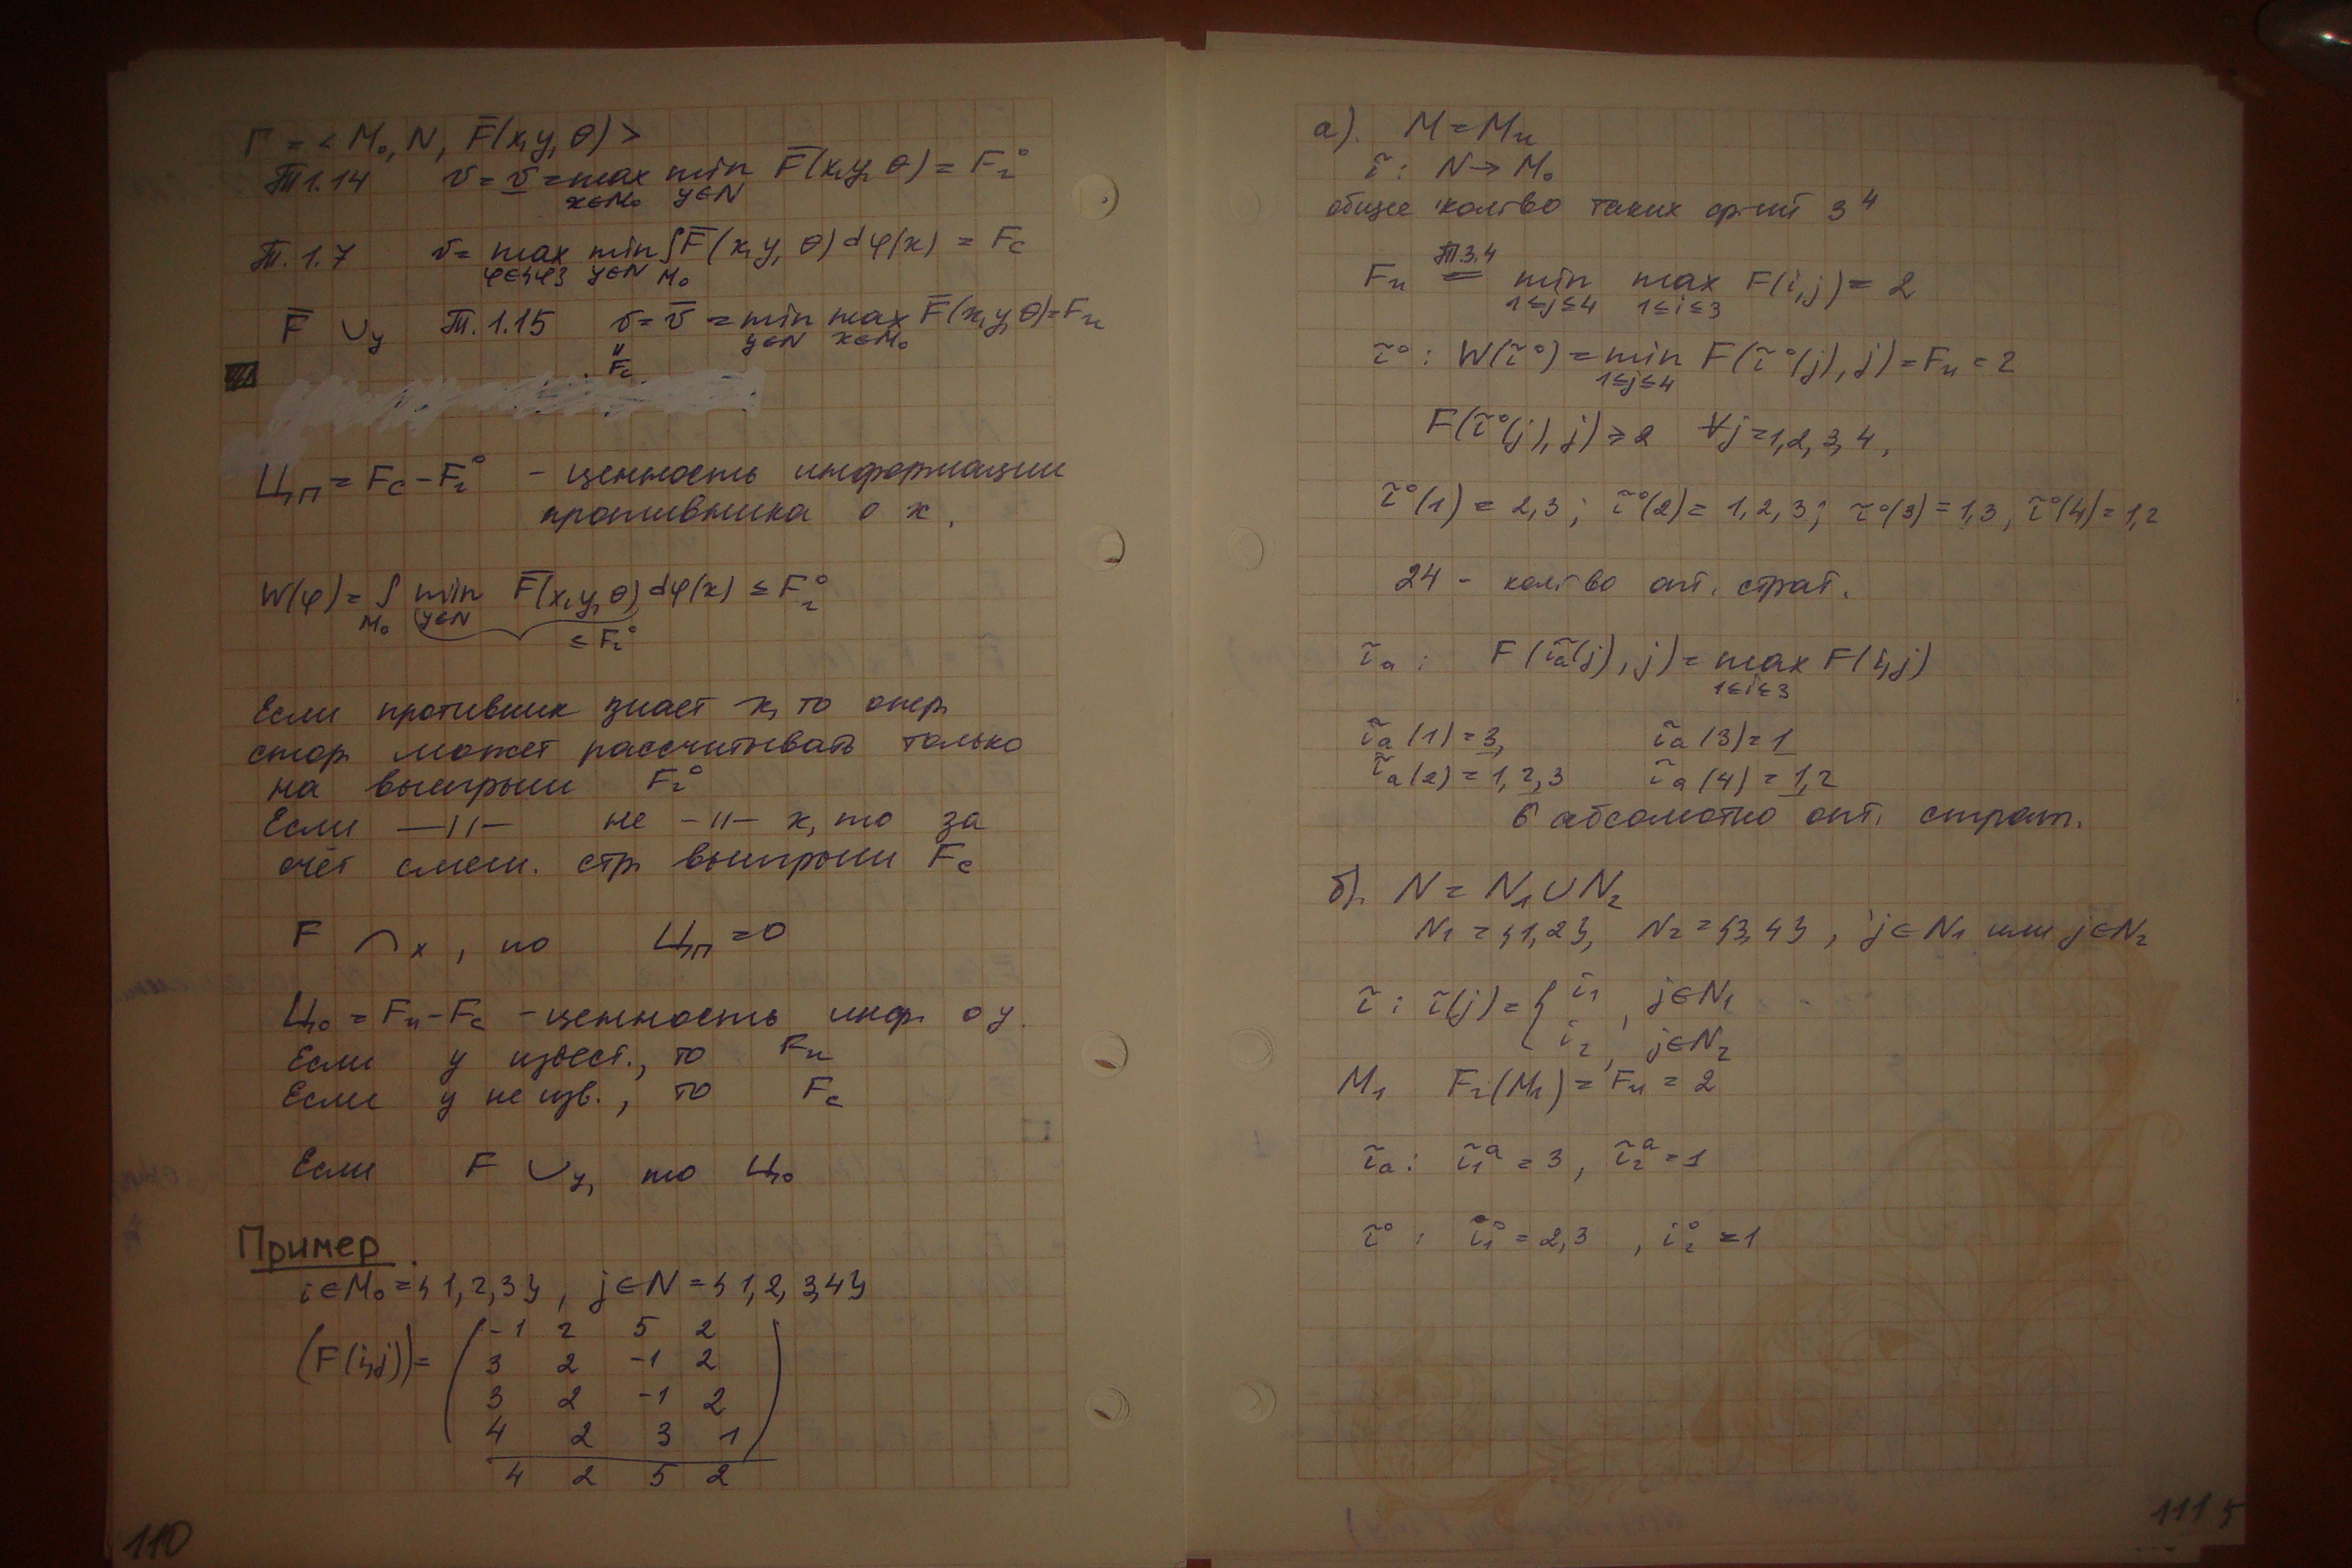 Г = < M₀, N, F̄(x,y,θ) >
Т1.14 v = v̲ = max min F̄(x,y,θ) = F₂°
x∈M₀ y∈N
Т.1.7 v = max min ∫ F̄(x,y,θ) dφ(x) = Fc
φ∈{φ} y∈N M₀
F̄ ∪y Т.1.15 v = v̄ = min max F̄(x,y,θ) = Fи
y∈N x∈M₀
"
Fc
Цп = Fc - Fг° - ценность информации
противника о x.
W(φ) = ∫ min F̄(x,y,θ) dφ(x) ≤ Fг°
M₀ y∈N
≤ Fг°
Если противник знает x, то опер.
стор. может рассчитывать только
на выигрыш Fг°
Если —//— не -//- x, то за
счёт смеш. стр. выигрыш Fc
F ∩x, то Цп = 0
Цо = Fи - Fc - ценность инф. о y.
Если y извест., то Fи
Если y не изв., то Fc
Если F ∪y, то Цо
Пример.
i∈M₀ = {1,2,3}, j∈N = {1,2,3,4}
(F(i,j)) =
-1 2 5 2
3 2 -1 2
3 2 -1 2
4 2 3 1
4 2 5 2
110
а). M = Mи
ĩ: N → M₀
общее кол-во таких ф-ций 3⁴
Fи = min max F(i,j) = 2
Т.3.4
1≤j≤4 1≤i≤3
ĩ°: W(ĩ°) = min F(ĩ°(j), j) = Fи = 2
1≤j≤4
F(ĩ°(j), j) ≥ 2 ∀j = 1,2,3,4,
ĩ°(1) = 2,3; ĩ°(2) = 1,2,3; ĩ°(3) = 1,3, ĩ°(4) = 1,2
24 - кол-во опт. страт.
ĩa: F(ĩa(j), j) = max F(i,j)
1≤i≤3
ĩa(1) = 3, ĩa(3) = 1
ĩa(2) = 1,2,3 ĩa(4) = 1,2
6 абсолютно опт. страт.
б). N = N₁ ∪ N₂
N₁ = {1,2}, N₂ = {3,4}, j∈N₁ или j∈N₂
ĩ: ĩ(j) = { i₁, j∈N₁
i₂, j∈N₂
M₁ Fг(M₁) = Fи = 2
ĩa: ĩ₁ᵃ = 3, ĩ₂ᵃ = 1
ĩ°: ĩ₁° = 2,3, i₂° = 1
111 5